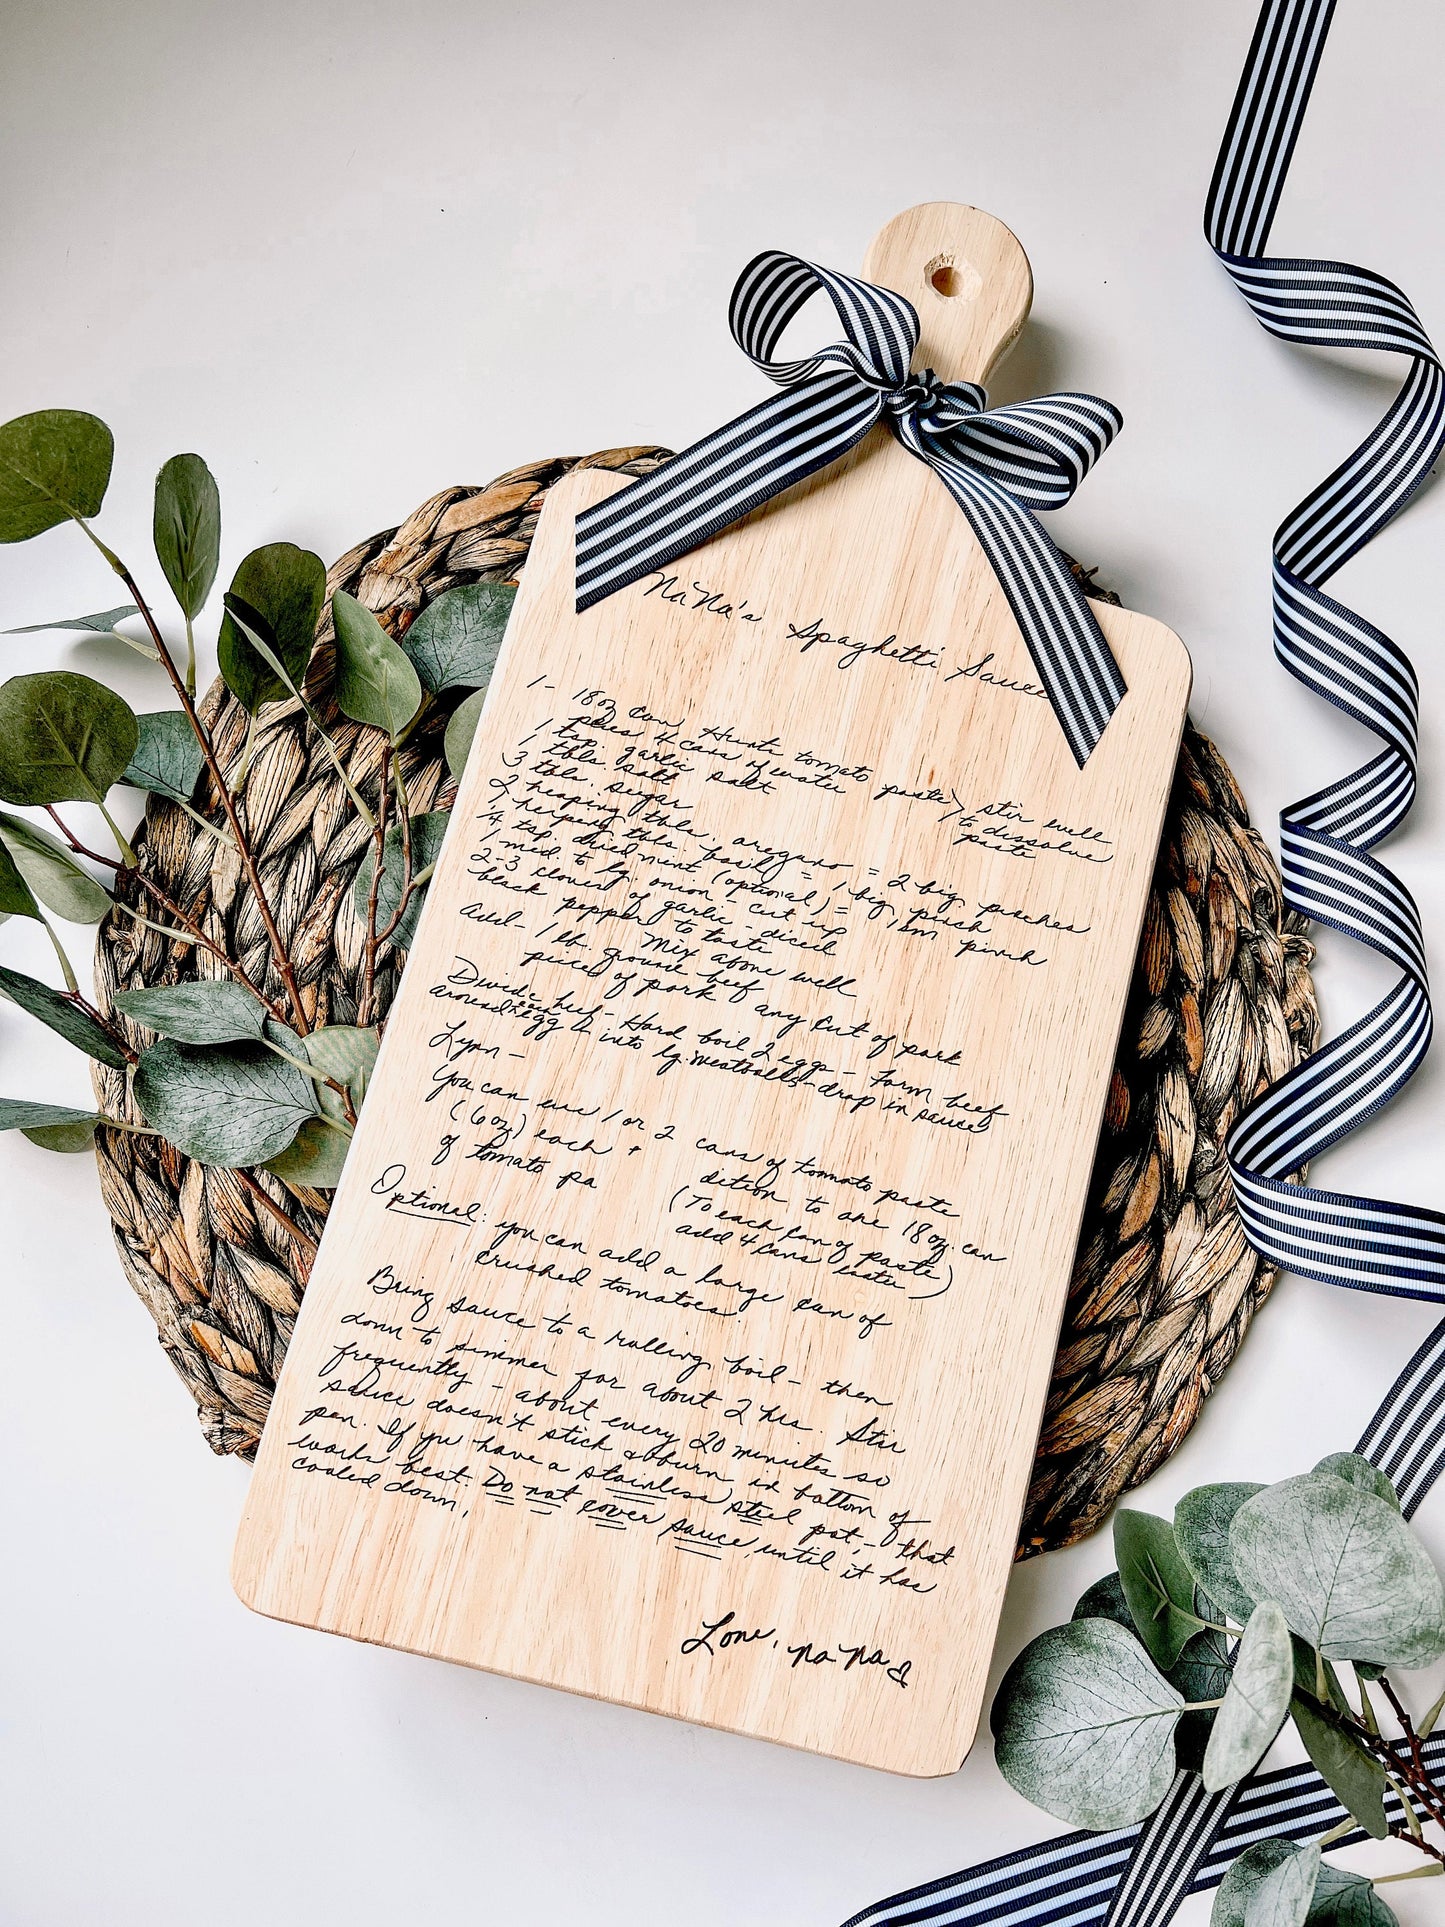 NaNa's Spaghetti Sauce
1 - 18oz can Hunts tomato paste) stir well
plus 4 cans of water to dissolve
1 tsp. garlic salt paste
1 tbls. salt
3 tbls. sugar
2 heaping tbls. oregano = 2 big pinches
1 heaping tbls. basil = 1 big pinch
1/4 tsp. dried mint (optional) = 1 sm pinch
1 med. to lg. onion - cut up
2-3 cloves of garlic - diced
black pepper to taste
Mix above well
Add - 1 lb. ground beef
piece of pork any cut of pork
Divide beef - Hard boil 2 eggs - Form beef
around egg - into lg. meatballs - drop in sauce
Lynn -
You can use 1 or 2 cans of tomato paste
(6oz) each + dition to one 18 oz. can
of tomato pa (To each can of paste)
add 4 cans water
Optional: you can add a large can of
crushed tomatoes.
Bring sauce to a rolling boil - then
down to simmer for about 2 hrs. Stir
frequently - about every 20 minutes so
sauce doesn't stick & burn in bottom of
pan. If you have a stainless steel pot, - that
works best. Do not cover sauce until it has
cooled down.
Love, NaNa